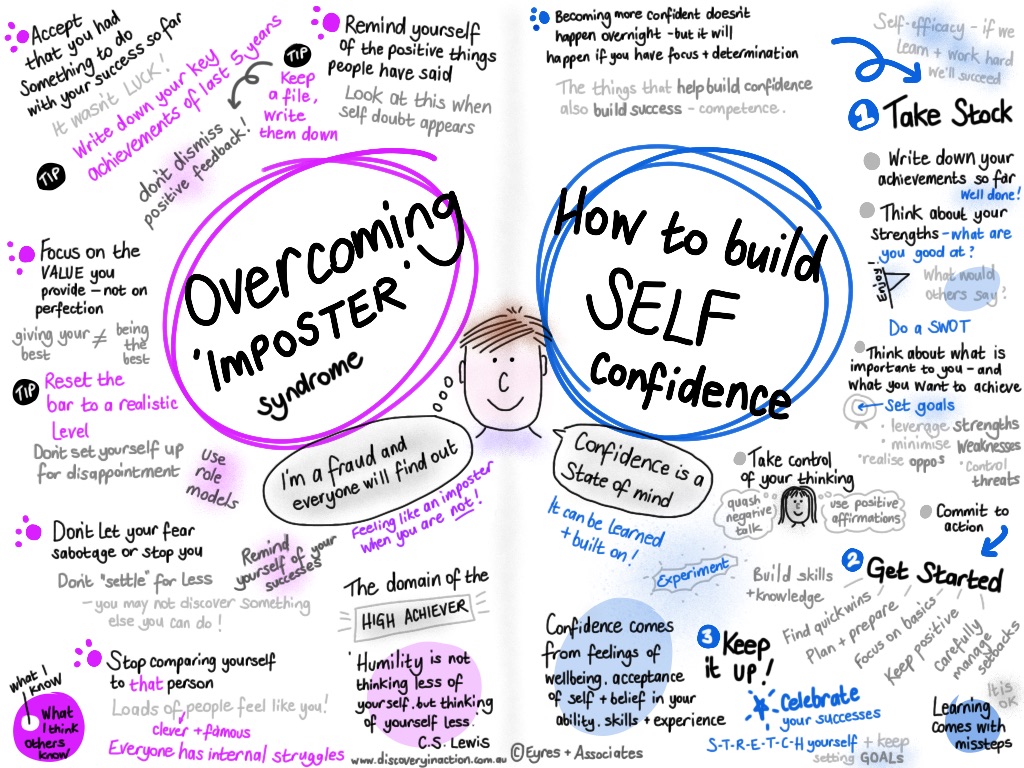 Accept
that you had
Something to do
with your success so far
It wasn't LUCK!
TIP
Write down your key
achievements of last 5 years
Remind yourself
of the positive things
people have said
Look at this when
self doubt appears
TIP
Keep
a file,
write
them down
don't dismiss
positive feedback!
Overcoming
'IMPOSTER'
syndrome
Focus on the
VALUE you
provide - not on
perfection
giving your best ≠ being the best
TIP
Reset the
bar to a realistic
Level
Don't set yourself up
for disappointment
Use
role
models
I'm a fraud and
everyone will find out
Feeling like an imposter
when you are not!
Don't Let your fear
sabotage or stop you
Don't "settle" for less
- you may not discover something
else you can do!
Remind
yourself of your
successes
The domain of the
HIGH ACHIEVER
Stop comparing yourself
to that person
Loads of people feel like you!
clever + famous
Everyone has internal struggles
what I
know
What
I think
others
know
'Humility is not
thinking less of
yourself, but thinking
of yourself less.'
C.S. Lewis
www.discoveryinaction.com.au
© Eyres + Associates
Becoming more confident doesn't
happen overnight - but it will
happen if you have focus + determination
The things that help build confidence
also build success - competence.
How to build
SELF
confidence
Confidence is a
State of mind
It can be Learned
+ built on!
Self-efficacy - if we
learn + work hard
we'll succeed
1 Take Stock
Write down your
achievements so far
Well done!
Think about your
strengths - what are
you good at?
ENJOY
What would
others say?
Do a SWOT
Think about what is
important to you - and
what you want to achieve
Set goals
• leverage strengths
• minimise weaknesses
• realise oppos
• control
threats
Take control
of your thinking
quash
negative
talk
use positive
affirmations
Commit to
action
2 Get Started
Experiment
Build skills
+ knowledge
Find quick wins
Plan + prepare
Focus on basics
Keep positive
Carefully
manage
setbacks
3 Keep
it up!
Celebrate
your successes
S-T-R-E-T-C-H yourself + keep
setting GOALS
It is
OK
Learning
comes with
missteps
Confidence comes
from feelings of
wellbeing, acceptance
of self + belief in your
ability, skills + experience